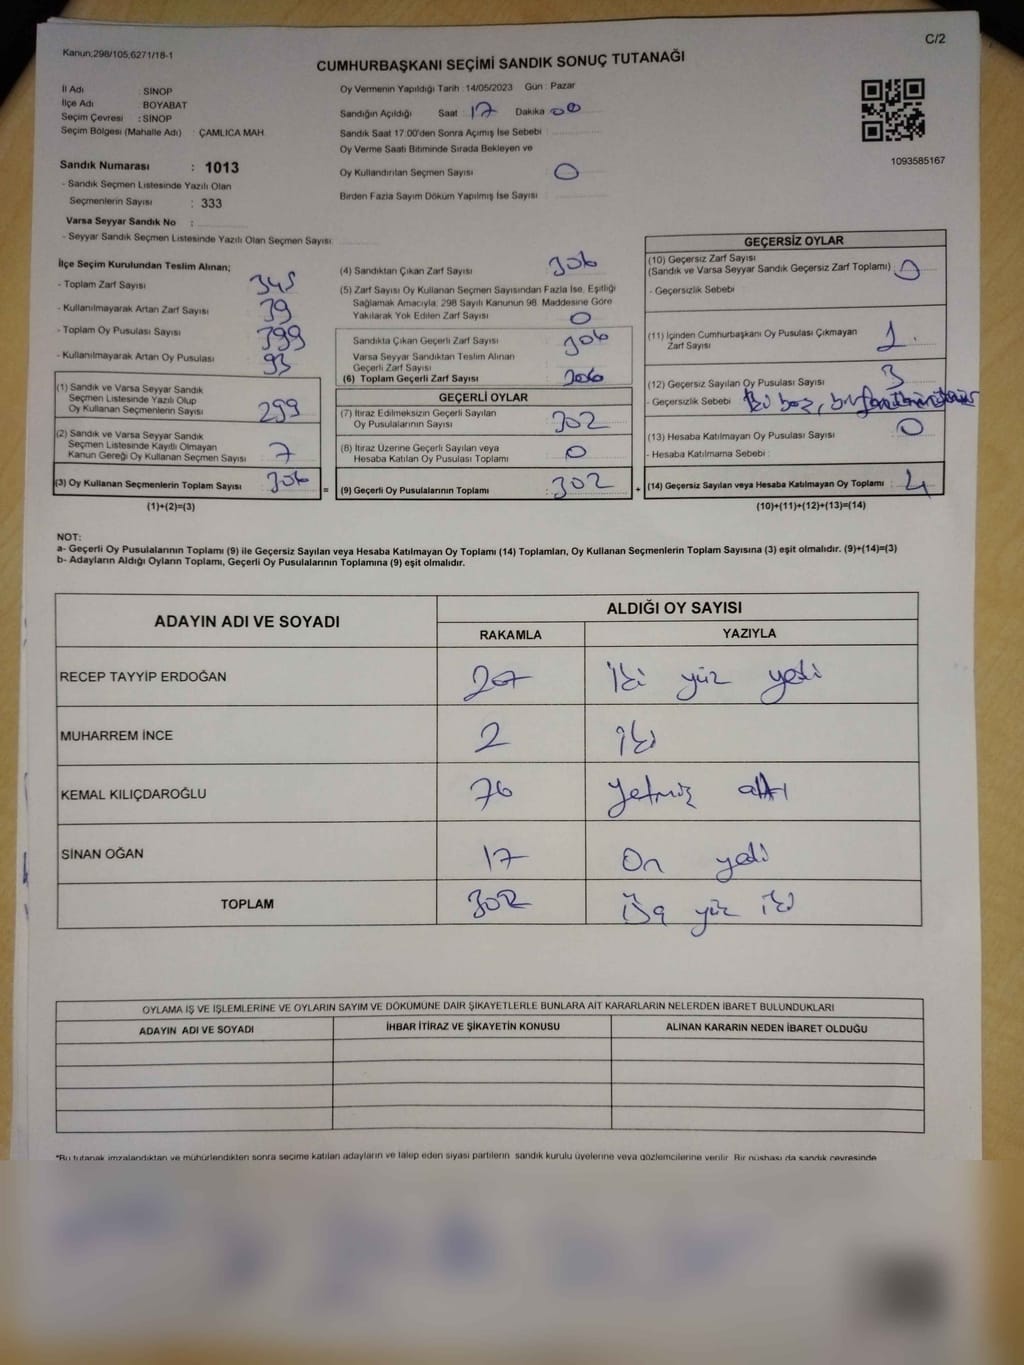 C/2
Kanun;298/105,6271/18-1
CUMHURBAŞKANI SEÇİMİ SANDIK SONUÇ TUTANAĞI
İl Adı : SİNOP
İlçe Adı : BOYABAT
Seçim Çevresi : SİNOP
Seçim Bölgesi (Mahalle Adı) : ÇAMLICA MAH.
Sandık Numarası : 1013
- Sandık Seçmen Listesinde Yazılı Olan
Seçmenlerin Sayısı : 333
Varsa Seyyar Sandık No :
- Seyyar Sandık Seçmen Listesinde Yazılı Olan Seçmen Sayısı:
Oy Vermenin Yapıldığı Tarih : 14/05/2023 Gün : Pazar
Sandığın Açıldığı Saat : 17 Dakika : 00
Sandık Saat 17:00'den Sonra Açımış İse Sebebi :
Oy Verme Saati Bitiminde Sırada Bekleyen ve
Oy Kullandırılan Seçmen Sayısı : 0
Birden Fazla Sayım Döküm Yapılmış İse Sayısı :
1093585167
İlçe Seçim Kurulundan Teslim Alınan;
- Toplam Zarf Sayısı : 345
- Kullanılmayarak Artan Zarf Sayısı : 39
- Toplam Oy Pusulası Sayısı : 399
- Kullanılmayarak Artan Oy Pusulası : 93
(1) Sandık ve Varsa Seyyar Sandık
Seçmen Listesinde Yazılı Olup
Oy Kullanan Seçmenlerin Sayısı : 299
(2) Sandık ve Varsa Seyyar Sandık
Seçmen Listesinde Kayıtlı Olmayan
Kanun Gereği Oy Kullanan Seçmen Sayısı : 7
(3) Oy Kullanan Seçmenlerin Toplam Sayısı : 306 =
(1)+(2)=(3)
(4) Sandıktan Çıkan Zarf Sayısı : 306
(5) Zarf Sayısı Oy Kullanan Seçmen Sayısından Fazla İse, Eşitliği
Sağlamak Amacıyla; 298 Sayılı Kanunun 98. Maddesine Göre
Yakılarak Yok Edilen Zarf Sayısı : 0
Sandıkta Çıkan Geçerli Zarf Sayısı : 306
Varsa Seyyar Sandıktan Teslim Alınan
Geçerli Zarf Sayısı :
(6) Toplam Geçerli Zarf Sayısı : 306
GEÇERLİ OYLAR
(7) İtiraz Edilmeksizin Geçerli Sayılan
Oy Pusulalarının Sayısı : 302
(8) İtiraz Üzerine Geçerli Sayılan veya
Hesaba Katılan Oy Pusulası Toplamı : 0
(9) Geçerli Oy Pusulalarının Toplamı : 302 +
GEÇERSİZ OYLAR
(10) Geçersiz Zarf Sayısı
(Sandık ve Varsa Seyyar Sandık Geçersiz Zarf Toplamı) : 0
- Geçersizlik Sebebi
(11) İçinden Cumhurbaşkanı Oy Pusulası Çıkmayan
Zarf Sayısı : 1.
(12) Geçersiz Sayılan Oy Pusulası Sayısı : 3
- Geçersizlik Sebebi : boş,
(13) Hesaba Katılmayan Oy Pusulası Sayısı : 0
- Hesaba Katılmama Sebebi :
(14) Geçersiz Sayılan veya Hesaba Katılmayan Oy Toplamı : 4
(10)+(11)+(12)+(13)=(14)
NOT:
a- Geçerli Oy Pusulalarının Toplamı (9) ile Geçersiz Sayılan veya Hesaba Katılmayan Oy Toplamı (14) Toplamları, Oy Kullanan Seçmenlerin Toplam Sayısına (3) eşit olmalıdır. (9)+(14)=(3)
b- Adayların Aldığı Oyların Toplamı, Geçerli Oy Pusulalarının Toplamına (9) eşit olmalıdır.
ADAYIN ADI VE SOYADI
ALDIĞI OY SAYISI
RAKAMLA YAZIYLA
RECEP TAYYİP ERDOĞAN 207 İki yüz yedi
MUHARREM İNCE 2 iki
KEMAL KILIÇDAROĞLU 76 yetmiş altı
SİNAN OĞAN 17 On yedi
TOPLAM 302 üç yüz iki
OYLAMA İŞ VE İŞLEMLERİNE VE OYLARIN SAYIM VE DÖKÜMÜNE DAİR ŞİKAYETLERLE BUNLARA AİT KARARLARIN NELERDEN İBARET BULUNDUKLARI
ADAYIN ADI VE SOYADI İHBAR İTİRAZ VE ŞİKAYETİN KONUSU ALINAN KARARIN NEDEN İBARET OLDUĞU
*Bu tutanak imzalandıktan ve mühürlendikten sonra seçime katılan adayların ve talep eden siyasi partilerin sandık kurulu üyelerine veya gözlemcilerine verilir. Bir nüshası da sandık çevresinde